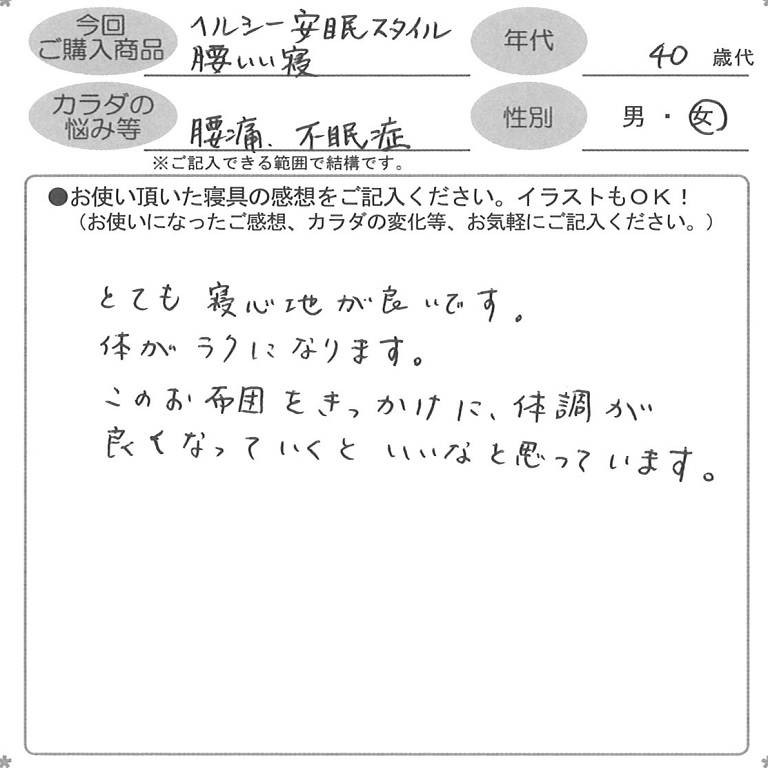 今回
ご購入商品
ヘルシー安眠スタイル
腰いい寝
年代
40 歳代
カラダの
悩み等
腰痛、不眠症
性別
男・女
※ご記入できる範囲で結構です。
●お使い頂いた寝具の感想をご記入ください。イラストもOK！
（お使いになったご感想、カラダの変化等、お気軽にご記入ください。）
とても 寝心地が良いです。
体がラクになります。
このお布団をきっかけに、体調が
良くなっていくといいなと思っています。